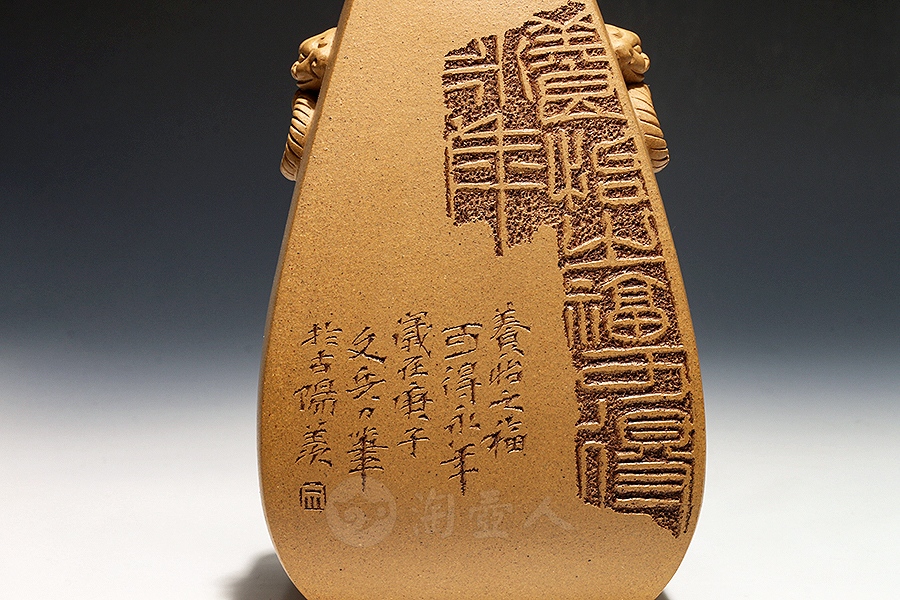 養怡之福可得
永年
養怡之福
可得永年
歲在庚子
文兵刀筆
於古陽羨